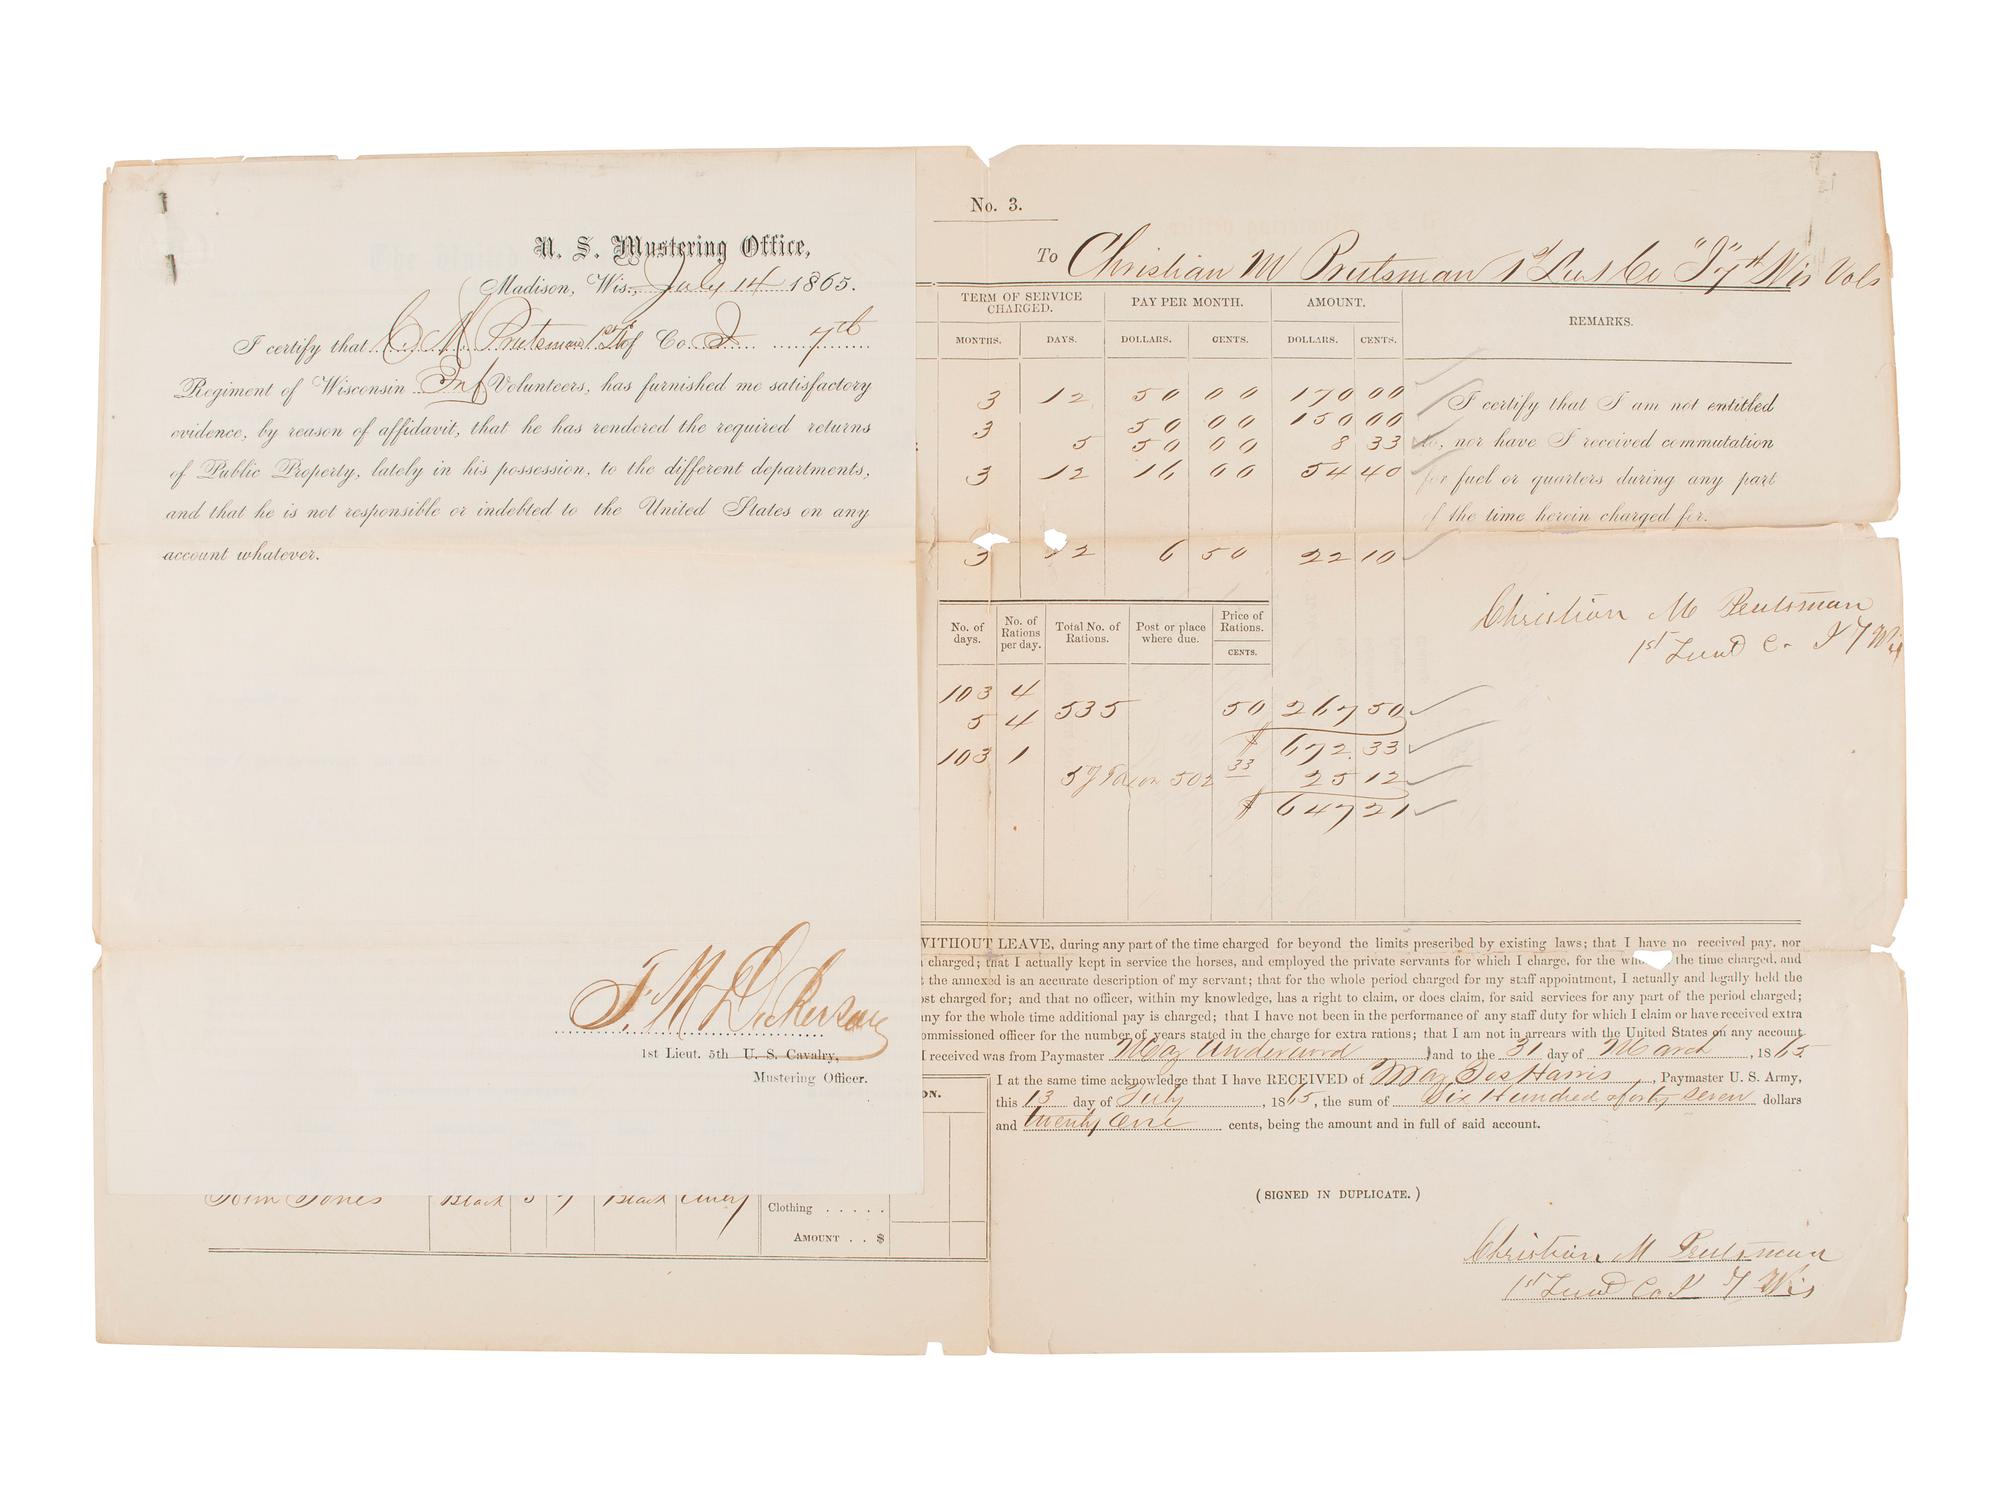 U. S. Mustering Office,
Madison, Wis., July 14 1865.
I certify that C. M. Prutsman 1st Lt of Co. I 7th
Regiment of Wisconsin Inf Volunteers, has furnished me satisfactory
evidence, by reason of affidavit, that he has rendered the required returns
of Public Property, lately in his possession, to the different departments,
and that he is not responsible or indebted to the United States on any
account whatever.
F. M. Dickerson
1st Lieut. 5th U. S. Cavalry,
Mustering Officer.
No. 3.
To Christian M Prutsman 1st Lieut Co "I" 7th Wis Vols
TERM OF SERVICE CHARGED. PAY PER MONTH. AMOUNT. REMARKS.
MONTHS. DAYS. DOLLARS. CENTS. DOLLARS. CENTS.
3 12 50 00 170 00
3 50 00 150 00
5 50 00 8 33
3 12 16 00 54 40
3 12 6 50 22 10
I certify that I am not entitled
to, nor have I received commutation
for fuel or quarters during any part
of the time herein charged for.
Christian M Prutsman
1st Lieut Co I 7 Wis
No. of days. No. of Rations per day. Total No. of Rations. Post or place where due. Price of Rations. CENTS.
103 4
5 4 535 50 267 50
103 1 $ 672.33
33 25 12
$ 647 21
WITHOUT LEAVE, during any part of the time charged for beyond the limits prescribed by existing laws; that I have no received pay, nor
charged; that I actually kept in service the horses, and employed the private servants for which I charge, for the who the time charged, and
the annexed is an accurate description of my servant; that for the whole period charged for my staff appointment, I actually and legally held the
ost charged for; and that no officer, within my knowledge, has a right to claim, or does claim, for said services for any part of the period charged;
any for the whole time additional pay is charged; that I have not been in the performance of any staff duty for which I claim or have received extra
ommissioned officer for the number of years stated in the charge for extra rations; that I am not in arrears with the United States on any account
I received was from Paymaster Maj Underwood and to the 31 day of March, 1865
I at the same time acknowledge that I have RECEIVED of Maj Jos Harris, Paymaster U. S. Army,
this 13 day of July, 1865, the sum of Six Hundred & forty seven dollars
and twenty One cents, being the amount and in full of said account.
(SIGNED IN DUPLICATE.)
Christian M Prutsman
1st Lieut Co I 7 Wis
ON.
John Jones Black 5 7 Black
Clothing . . . . .
AMOUNT . . $